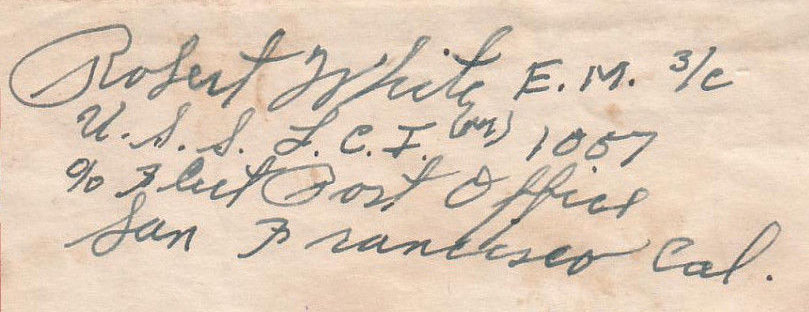 Robert White E.M. 3/c
U.S.S. L.C.I. (M) 1057
c/o Fleet Post Office
San Francisco Cal.